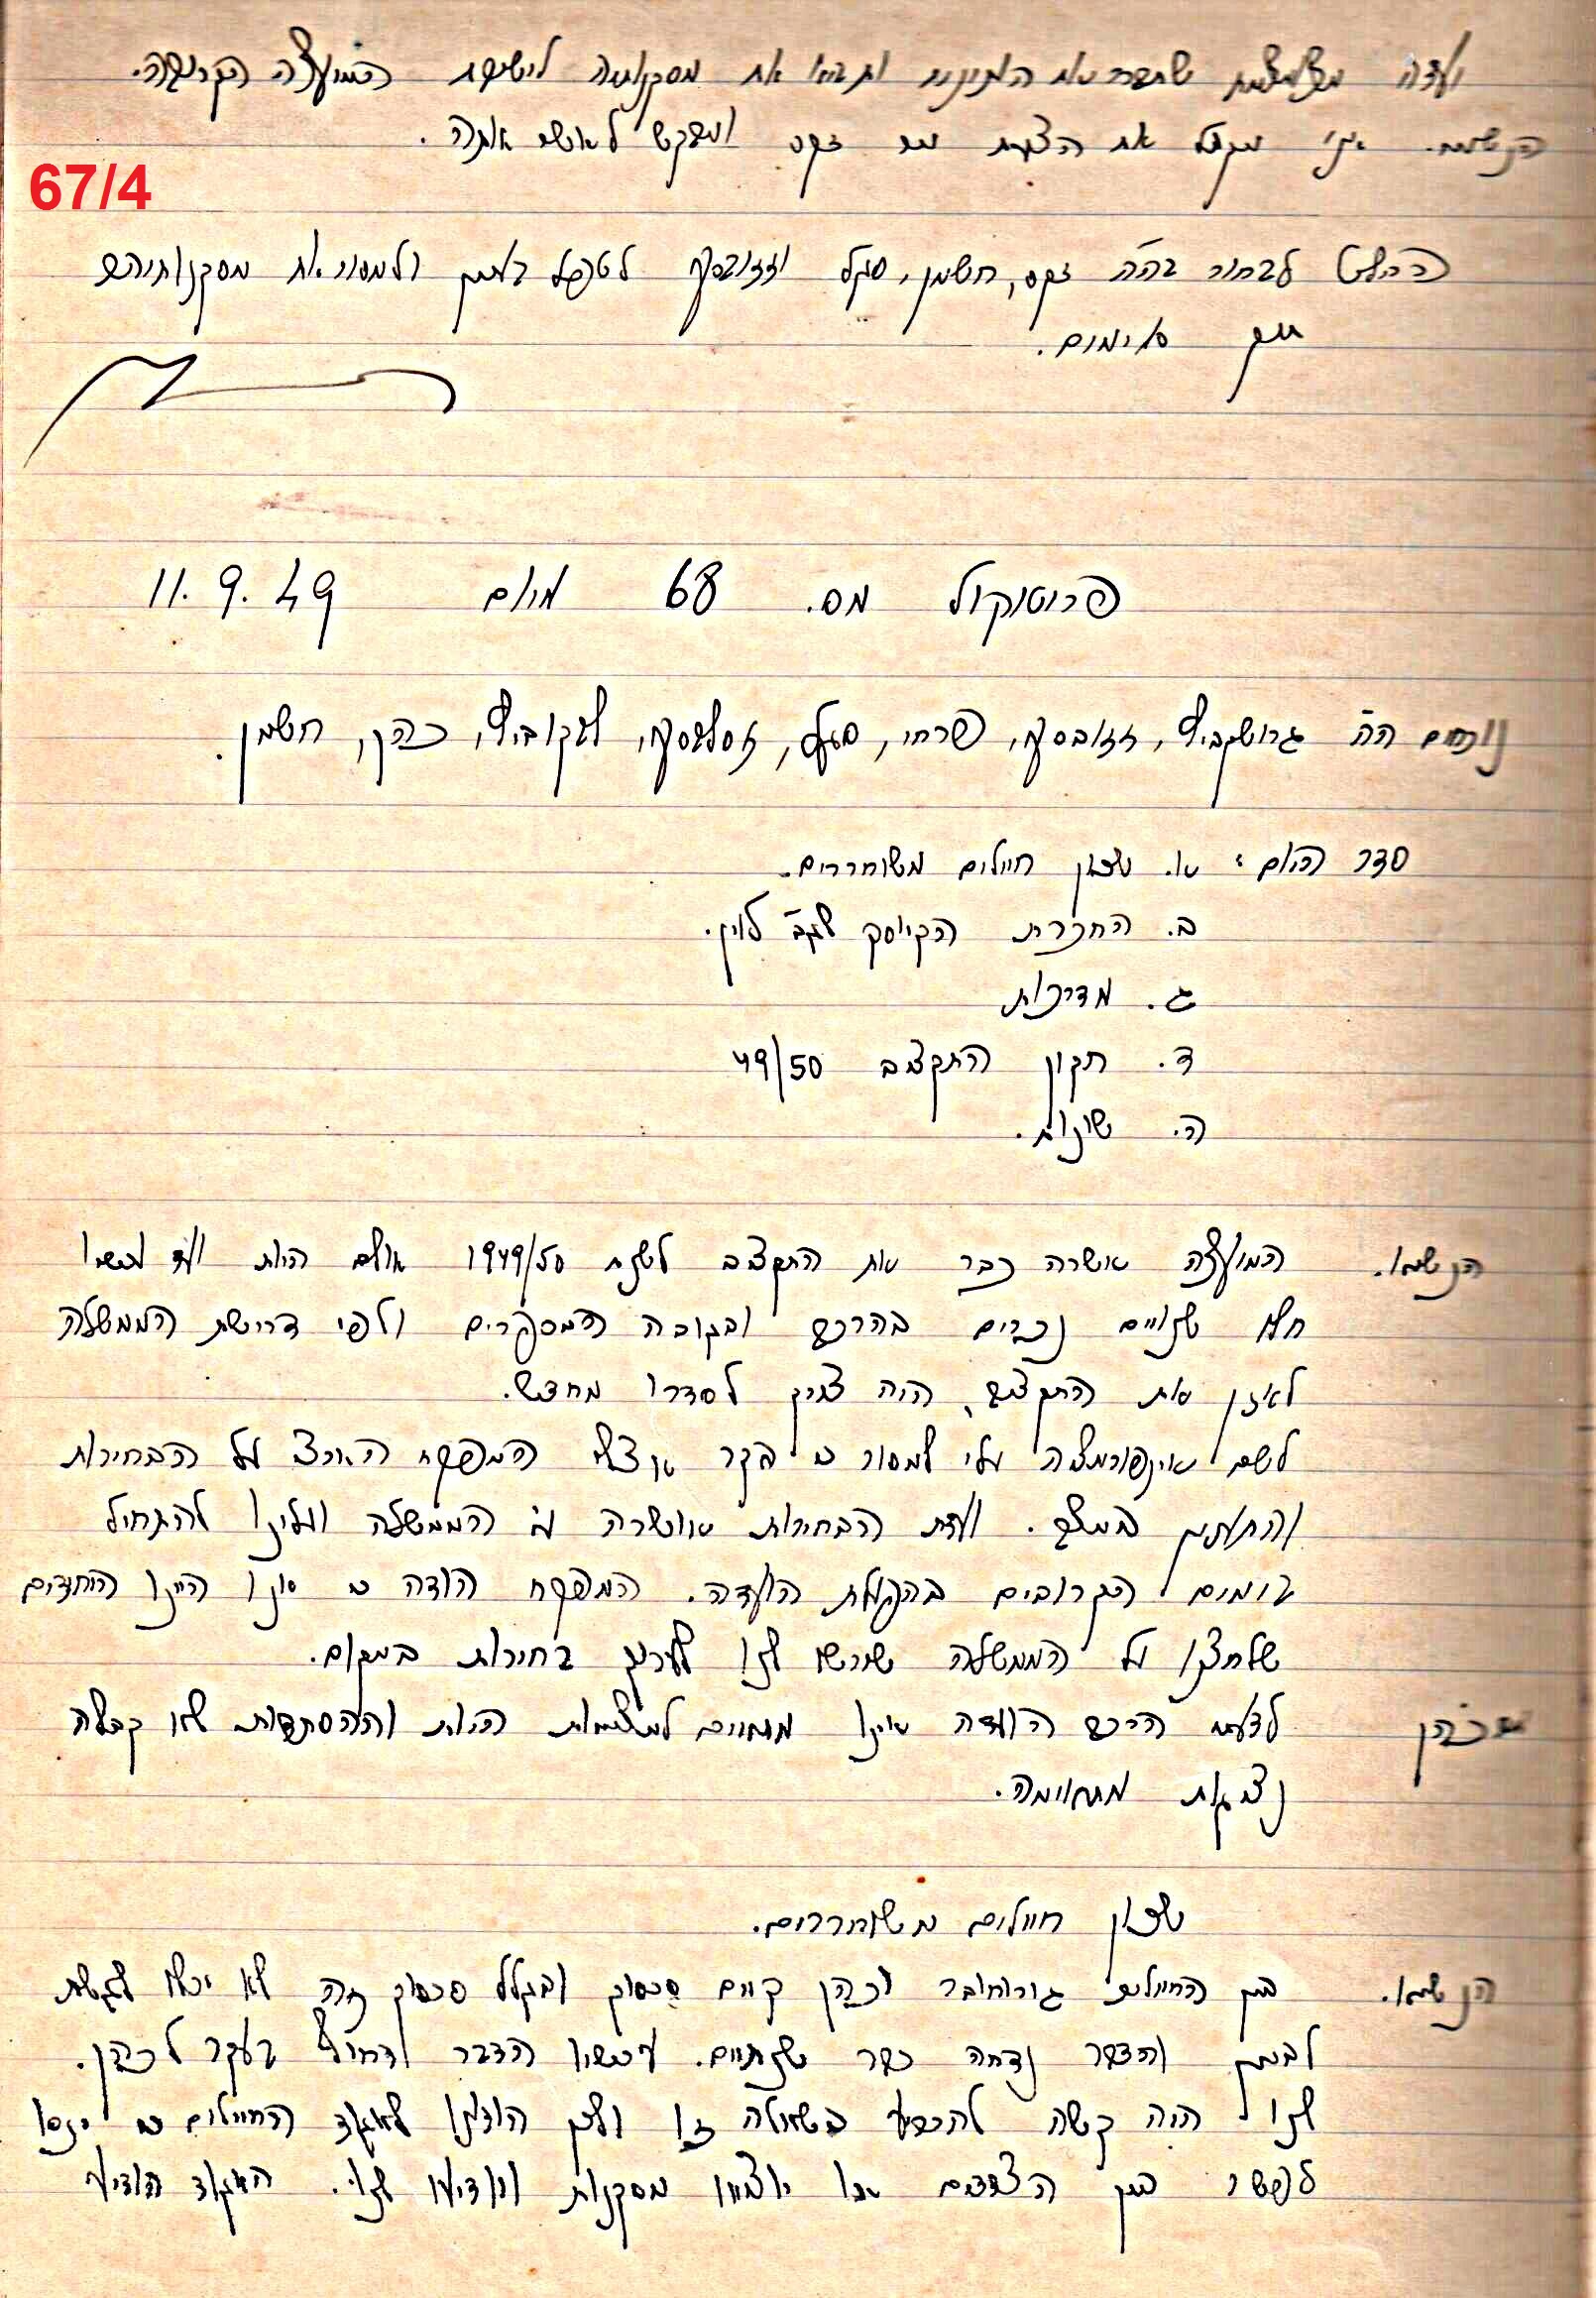 ועדה מצומצמת שתברר את התיקונים ותביא את מסקנותיה לישיבת המועצה הקרובה.
הנשיא. אני מקבל את הצעת מר זקס ומבקש לאשר אותה.
67/4
הוחלט לבחור בה"ה זקס, חשמן, סגל וזזובסקי לטפל בענין ולמסור את מסקנותיהם
תוך יומים.
פרוטוקול מס. 68 מיום 11.9.49
נוכחים ה"ה גרושקביץ, זזובסקי, פרחי, סגל, זסלבסקי, יעקוביץ, כהן, חשמן.
סדר היום: א. שכון חיילים משוחררים.
ב. החכרת הקיוסק לגב' לוין.
ג. מדיכות
ד. תקון התקציב 49/50
ה. שונות.
הנשיא. המועצה אשרה כבר את התקציב לשנת 1949/50 אולם היות ועד עכשו
חלו שנויים נכרים בהרכב ובגובה המספרים ולפי דרישת הממשלה
לאזן את התקציב, היה צריך לסדרו מחדש.
לשם אינפורמציה עלי למסור כי בקר אצלנו המפקח הארצי על הבחירות
והתענין במצב. ועדת הבחירות אושרה ע"י הממשלה ועלינו להתחיל
בימים הקרובים בהפעלת הועדה. המפקח הודה כי אנו היינו היחידים
שלחצנו על הממשלה שירשו לנו לערוך בחירות במקום.
כהן לדעתי הרכב הועדה אינו מתאים למציאות היות וההסתדרות לא קבלה
נציגות מתאימה.
שכון חיילים משוחררים.
הנשיא. בין החיילים גורוחובר וכהן קיים סכסוך ובגלל סכסוך זה לא יכלו לגשת
לבנין והדבר נדחה כבר שנתיים. עכשיו הדבר דחוף בעקר לכהן.
לנו היה קשה להכריע בשאלה זו ולכן הודענו לאגוד החיילים כי ינסו
לפשר בין הצדדים או יוציאו מסקנות ויודיעו לנו. האגוד הודיע